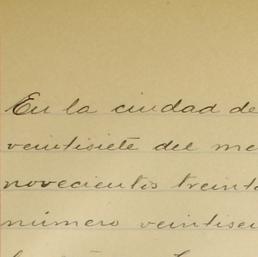 En la ciudad de
veintisiete del me
novecientos treinta
número veintisei